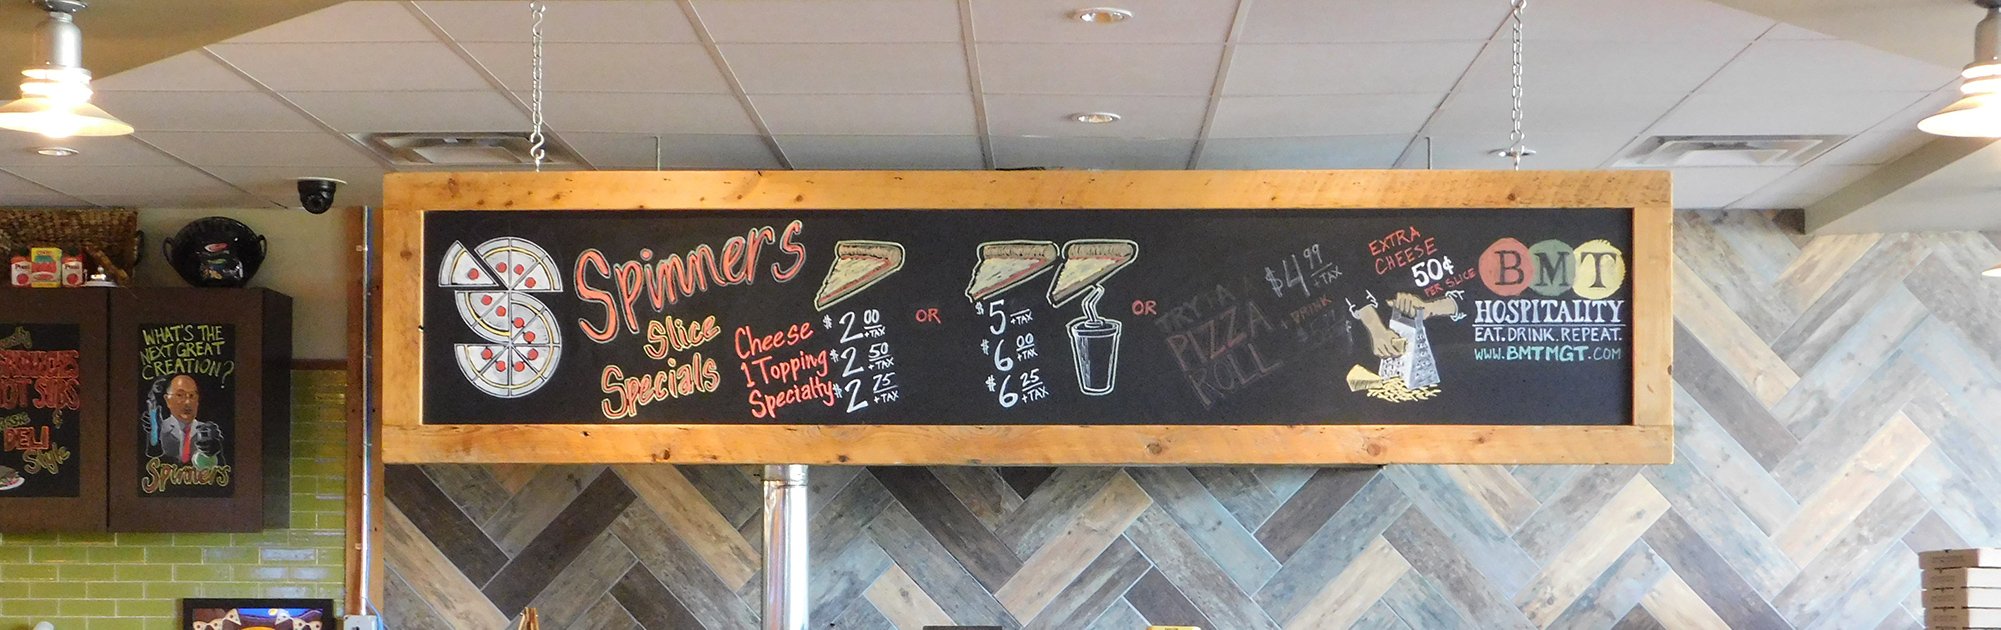 WHAT'S THE
NEXT GREAT
CREATION?
Spinners
HOT SUBS
&
DELI
Style
Spinners
Slice
Specials
Cheese $2 00 +TAX
1 Topping $2 50 +TAX
Specialty $2 75 +TAX
OR
$5 +TAX
$6 00 +TAX
$6 25 +TAX
OR
TRY A
PIZZA
ROLL
$4 99 +TAX
+ DRINK
EXTRA
CHEESE
50¢
PER SLICE
BMT
HOSPITALITY
EAT. DRINK. REPEAT.
WWW.BMTMGT.COM